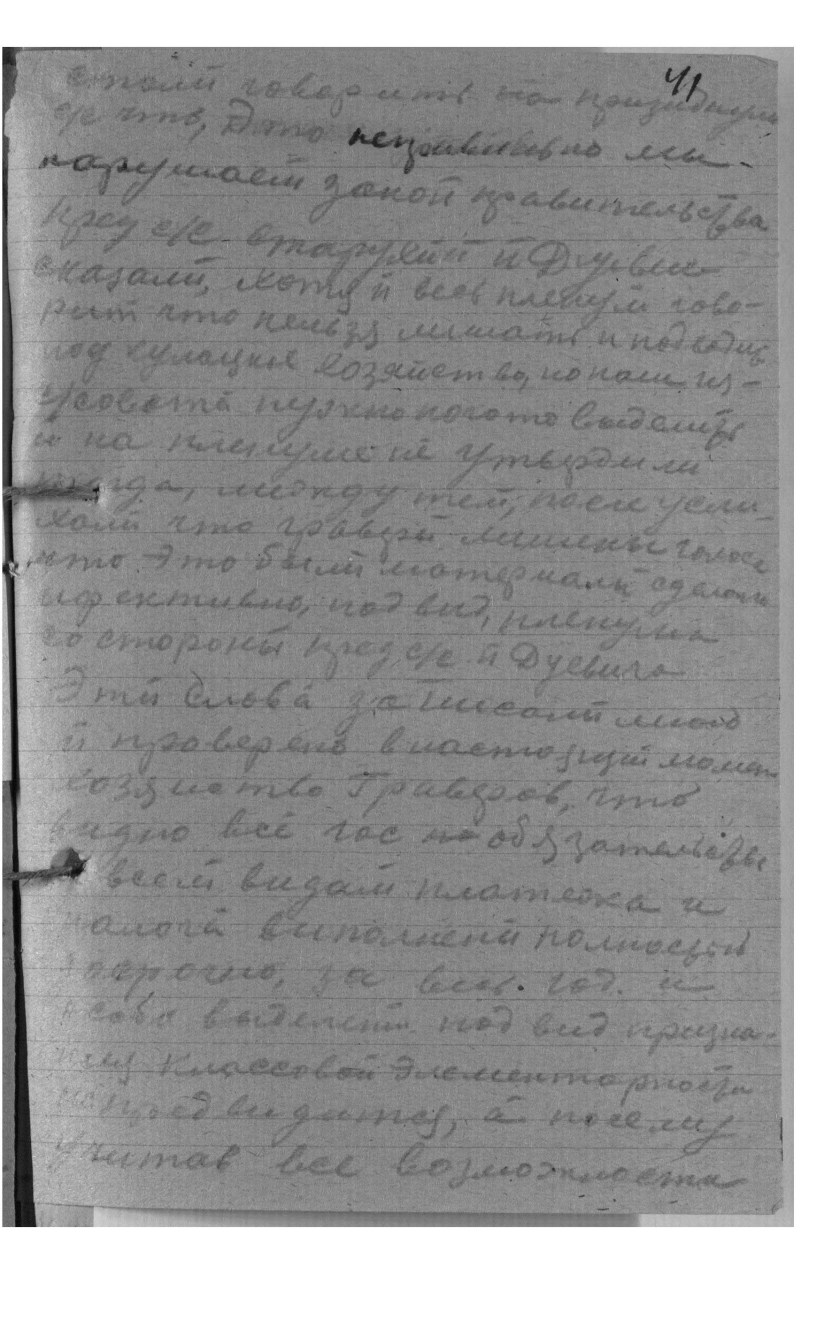 41
стали говорить на призидиуми
с/с что, Это неправильно мы
нарушаем закон правительства
пред с/с. старухин и Дуевич
сказали, хотя и весь пленум гово-
рит что нельзя лишать и подводить
под кулацкое хозяйство, но нам из-
усовета нужно кого то выделить
и на пленуме не утвердили
тогда, между тем, после услы
хали что граверы лишены голоса
что Это были материалы сделаны
ифективно, под вид, пленума
со стороны пред, с/с и Дуевича
Эти Слова записали мною
и проверено в настоящий момент
хозяиство Граверов, что
видно все гос обязательства
всем видам платежа и
налога выполнени полностью
за весь. год. и
особо выделет под вид призна-
ния Классовой Элементарности
не предвидится, а посему
учитав все возможности